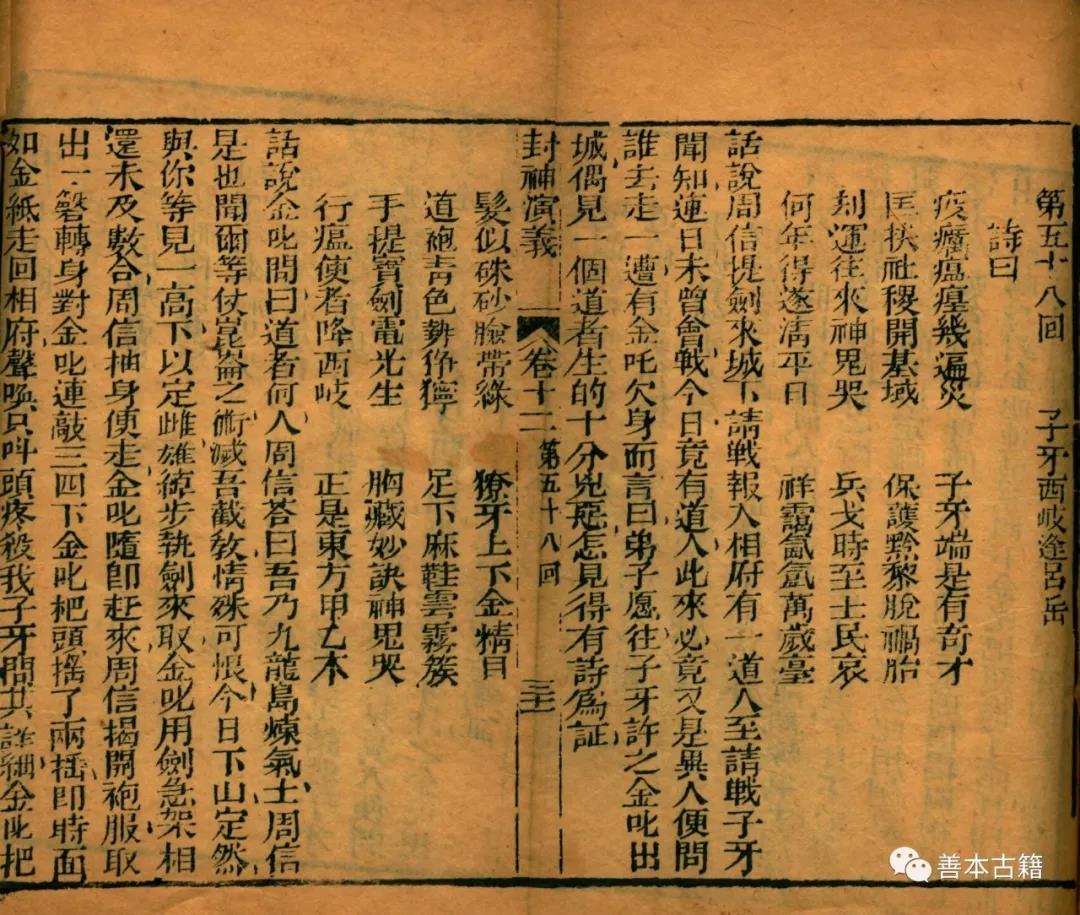 第五十八回 子牙西岐逢呂岳
詩曰
疫癘瘟𤸁幾遍災 子牙端是有奇才
匡扶社稷開基域 保護黔黎脫禍胎
刼運往來神鬼哭 兵戈時至士民哀
何年得遂清平日 祥靄氤氳萬歲臺
話說周信提劍來城下請戰報入相府有一道人至請戰子牙
聞知連日未曾會戰今日竟有道人此來必竟又是異人便問
誰去走一遭有金吒欠身而言曰弟子愿往子牙許之金叱出
城偶見一個道者生的十分兇惡怎見得有詩爲証
封神演義 卷十二 第五十八回
髮似硃砂臉帶綠 獠牙上下金精目
道袍青色勢猙獰 足下麻鞋雲霧簇
手提寶劍電光生 胸藏妙訣神鬼哭
行瘟使者降西岐 正是東方甲乙木
話說金叱問曰道者何人周信荅曰吾乃九龍島煉氣士周信
是也聞爾等仗崑崙之術滅吾截教情殊可恨今日下山定然
與你等見一高下以定雌雄綽步執劍來取金叱用劍急架相
還未及數合周信抽身便走金叱隨即赶來周信揭開袍服取
出一磬轉身對金叱連敲三四下金叱把頭搖了兩搖即時面
如金紙走回相府聲喚只叫頭疼殺我子牙問其詳細金叱把
善本古籍